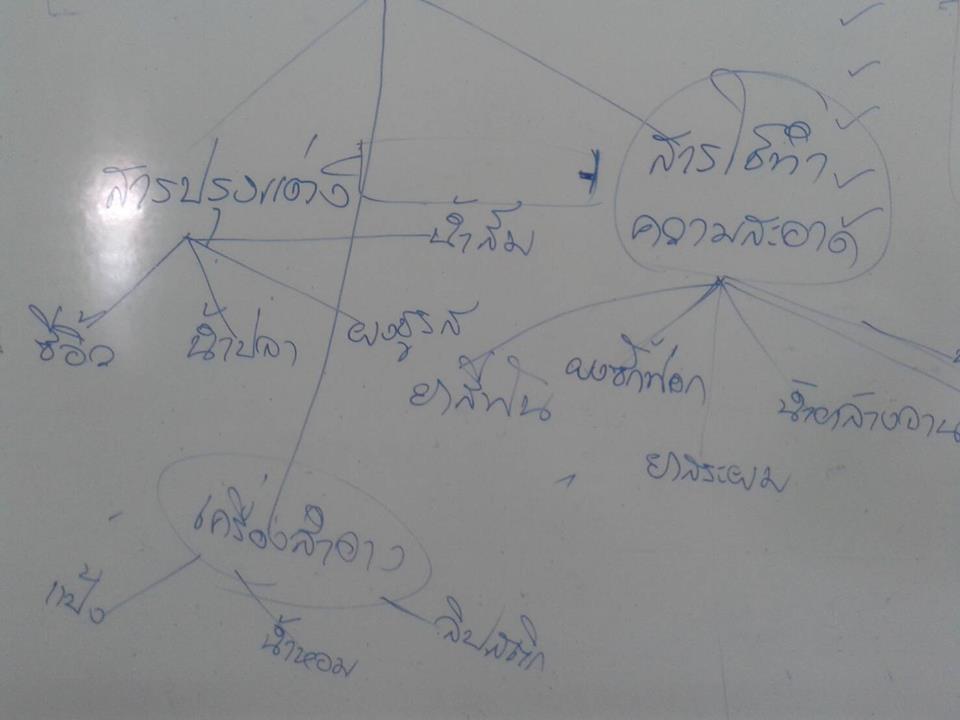 สารปรุงแต่ง
สารใช้ทำ
ความสะอาด
น้ำส้ม
ซีอิ๊ว
น้ำปลา
ผงชูรส
ยาสีฟัน
ผงซักฟอก
น้ำยาล้างจาน
ยาสระผม
เครื่องสำอาง
แป้ง
น้ำหอม
ลิปสติก